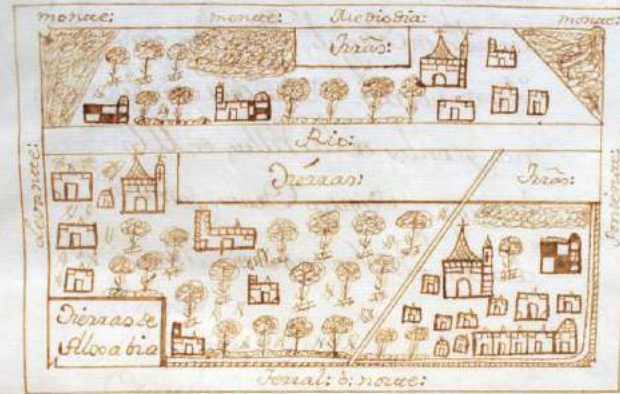 monte: monte: Mediodia: monte:
trãs:
Rio:
Levante:
Tierras: trãs:
Poniente:
Tierras de
Alxabia
Ferral: ð: norte: